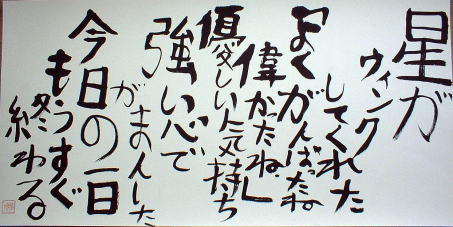 星が
ウィンク
してくれた
「よくがんばったね
偉かったね」
優しい気持ち
強い心で
がまんした
今日の一日
もうすぐ
終わる